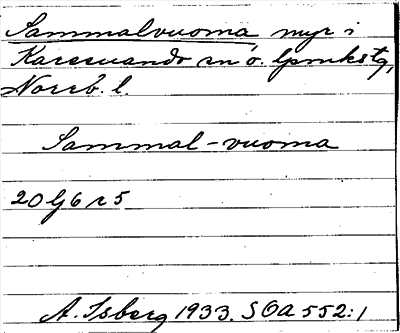 Sammalvuoma myr i
Karesuando sn o. lpmkstg,
Norrb. l.
Sammal-vuoma
20 G 6 r 5
A. Isberg 1933. SOA 552:1